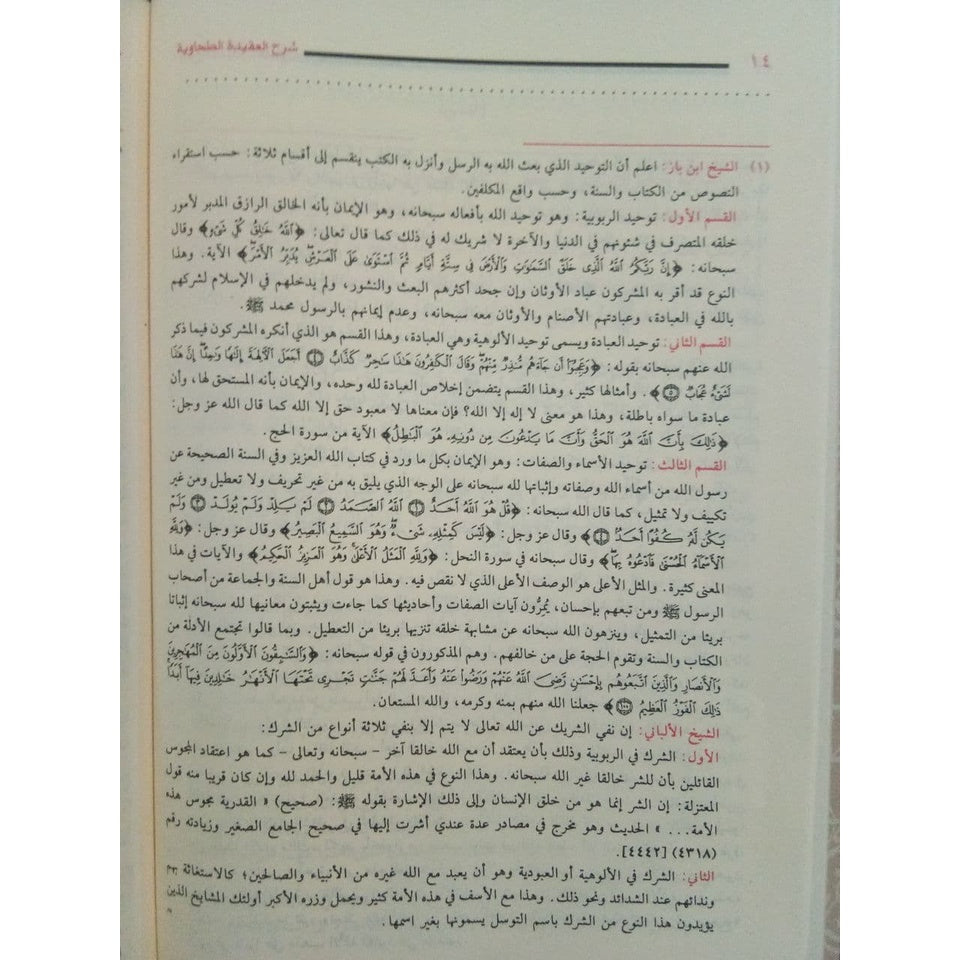 ١٤
شرح العقيدة الطحاوية
(١) الشيخ ابن باز: اعلم أن التوحيد الذي بعث الله به الرسل وأنزل به الكتب ينقسم إلى أقسام ثلاثة: حسب استقراء
النصوص من الكتاب والسنة، وحسب واقع المكلفين.
القسم الأول: توحيد الربوبية: وهو توحيد الله بأفعاله سبحانه، وهو الإيمان بأنه الخالق الرازق المدبر لأمور
خلقه المتصرف في شئونهم في الدنيا والآخرة لا شريك له في ذلك كما قال تعالى: ﴿اللَّهُ خَالِقُ كُلِّ شَيْءٍ﴾ وقال
سبحانه: ﴿إِنَّ رَبَّكُمُ اللَّهُ الَّذِي خَلَقَ السَّمَاوَاتِ وَالْأَرْضَ فِي سِتَّةِ أَيَّامٍ ثُمَّ اسْتَوَىٰ عَلَى الْعَرْشِ يُدَبِّرُ الْأَمْرَ﴾ الآية. وهذا
النوع قد أقر به المشركون عباد الأوثان وإن جحد أكثرهم البعث والنشور، ولم يدخلهم في الإسلام لشركهم
بالله في العبادة، وعبادتهم الأصنام والأوثان معه سبحانه، وعدم إيمانهم بالرسول محمد ﷺ.
القسم الثاني: توحيد العبادة ويسمى توحيد الألوهية وهي العبادة، وهذا القسم هو الذي أنكره المشركون فيما ذكر
الله عنهم سبحانه بقوله: ﴿وَعَجِبُوا أَن جَاءَهُم مُّنذِرٌ مِّنْهُمْ وَقَالَ الْكَافِرُونَ هَٰذَا سَاحِرٌ كَذَّابٌ ۝٤ أَجَعَلَ الْآلِهَةَ إِلَٰهًا وَاحِدًا إِنَّ هَٰذَا
لَشَيْءٌ عُجَابٌ ۝٥﴾. وأمثالها كثير، وهذا القسم يتضمن إخلاص العبادة لله وحده، والإيمان بأنه المستحق لها، وأن
عبادة ما سواه باطلة، وهذا هو معنى لا إله إلا الله؟ فإن معناها لا معبود حق إلا الله كما قال الله عز وجل:
﴿ذَٰلِكَ بِأَنَّ اللَّهَ هُوَ الْحَقُّ وَأَنَّ مَا يَدْعُونَ مِن دُونِهِ هُوَ الْبَاطِلُ﴾ الآية من سورة الحج.
القسم الثالث: توحيد الأسماء والصفات: وهو الإيمان بكل ما ورد في كتاب الله العزيز وفي السنة الصحيحة عن
رسول الله من أسماء الله وصفاته وإثباتها لله سبحانه على الوجه الذي يليق به من غير تحريف ولا تعطيل ومن غير
تكييف ولا تمثيل، كما قال الله سبحانه: ﴿قُلْ هُوَ اللَّهُ أَحَدٌ ۝١ اللَّهُ الصَّمَدُ ۝٢ لَمْ يَلِدْ وَلَمْ يُولَدْ ۝٣ وَلَمْ
يَكُن لَّهُ كُفُوًا أَحَدٌ ۝٤﴾ وقال عز وجل: ﴿لَيْسَ كَمِثْلِهِ شَيْءٌ وَهُوَ السَّمِيعُ الْبَصِيرُ﴾ وقال عز وجل: ﴿وَلِلَّهِ
الْأَسْمَاءُ الْحُسْنَىٰ فَادْعُوهُ بِهَا﴾ وقال سبحانه في سورة النحل: ﴿وَلِلَّهِ الْمَثَلُ الْأَعْلَىٰ وَهُوَ الْعَزِيزُ الْحَكِيمُ﴾ والآيات في هذا
المعنى كثيرة. والمثل الأعلى هو الوصف الأعلى الذي لا نقص فيه. وهذا هو قول أهل السنة والجماعة من أصحاب
الرسول ﷺ ومن تبعهم بإحسان، يُمرُّون آيات الصفات وأحاديثها كما جاءت ويثبتون معانيها لله سبحانه إثباتا
بريئا من التمثيل، وينزهون الله سبحانه عن مشابهة خلقه تنزيها بريئا من التعطيل. وبما قالوا تجتمع الأدلة من
الكتاب والسنة وتقوم الحجة على من خالفهم. وهم المذكورون في قوله سبحانه: ﴿وَالسَّابِقُونَ الْأَوَّلُونَ مِنَ الْمُهَاجِرِينَ
وَالْأَنصَارِ وَالَّذِينَ اتَّبَعُوهُم بِإِحْسَانٍ رَّضِيَ اللَّهُ عَنْهُمْ وَرَضُوا عَنْهُ وَأَعَدَّ لَهُمْ جَنَّاتٍ تَجْرِي تَحْتَهَا الْأَنْهَارُ خَالِدِينَ فِيهَا أَبَدًا
ذَٰلِكَ الْفَوْزُ الْعَظِيمُ ۝١٠٠﴾ جعلنا الله منهم بمنه وكرمه، والله المستعان.
الشيخ الألباني: إن نفي الشريك عن الله تعالى لا يتم إلا بنفي ثلاثة أنواع من الشرك:
الأول: الشرك في الربوبية وذلك بأن يعتقد أن مع الله خالقا آخر – سبحانه وتعالى – كما هو اعتقاد المجوس
القائلين بأن للشر خالقا غير الله سبحانه. وهذا النوع في هذه الأمة قليل والحمد لله وإن كان قريبا منه قول
المعتزلة: إن الشر إنما هو من خلق الإنسان وإلى ذلك الإشارة بقوله ﷺ: (صحيح) « القدرية مجوس هذه
الأمة... » الحديث وهو مخرج في مصادر عدة عندي أشرت إليها في صحيح الجامع الصغير وزيادته رقم
(٤٣١٨) [٤٤٤٢].
الثاني: الشرك في الألوهية أو العبودية وهو أن يعبد مع الله غيره من الأنبياء والصالحين؛ كالاستغاثة بهم
وندائهم عند الشدائد ونحو ذلك. وهذا مع الأسف في هذه الأمة كثير ويحمل وزره الأكبر أولئك المشايخ الذين
يؤيدون هذا النوع من الشرك باسم التوسل يسمونها بغير اسمها.